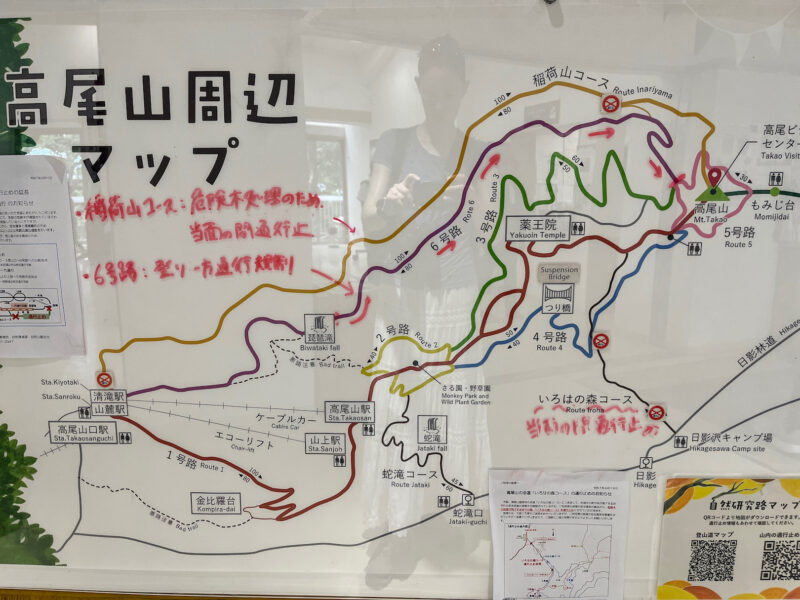 高尾山周辺
マップ
・稲荷山コース：危険木処理のため、
当面の間通行止
・6号路：登り一方通行規制
稲荷山コース
Route Inariyama
100
80
6号路
Route 6
100
80
3号路
Route 3
60
50
高尾ビ
センタ
Takao Visit
30
高尾山
Mt.Takao
もみじ台
Momijidai
5号路
Route 5
薬王院
Yakuoin Temple
Suspension
Bridge
つり橋
4号路
Route 4
50
40
琵琶滝
Biwataki fall
悪路注意 Bad trail
2号路
Route 2
40
さる園・野草園
Monkey Park and
Wild Plant Garden
いろはの森コース
Route Iroha
当面の間通行止め
日影林道
Hikage
日影沢キャンプ場
Hikagesawa Camp site
日影
Hikage
Sta.Kiyotaki
清滝駅
Sta.Sanroku
山麓駅
高尾山口駅
Sta.Takaosanguchi
ケーブルカー
Cabins Car
エコーリフト
Chair-lift
高尾山駅
Sta.Takaosan
山上駅
Sta.Sanjoh
蛇滝
Jataki fall
蛇滝コース
Route Jataki
60
45
蛇滝口
Jataki-guchi
1号路
Route 1
100
80
金比羅台
Kompira-dai
悪路注意 Bad trail
自然研究路マップ
QRコードより地図がダウンロードできます
登山道マップ
山内の通行止め